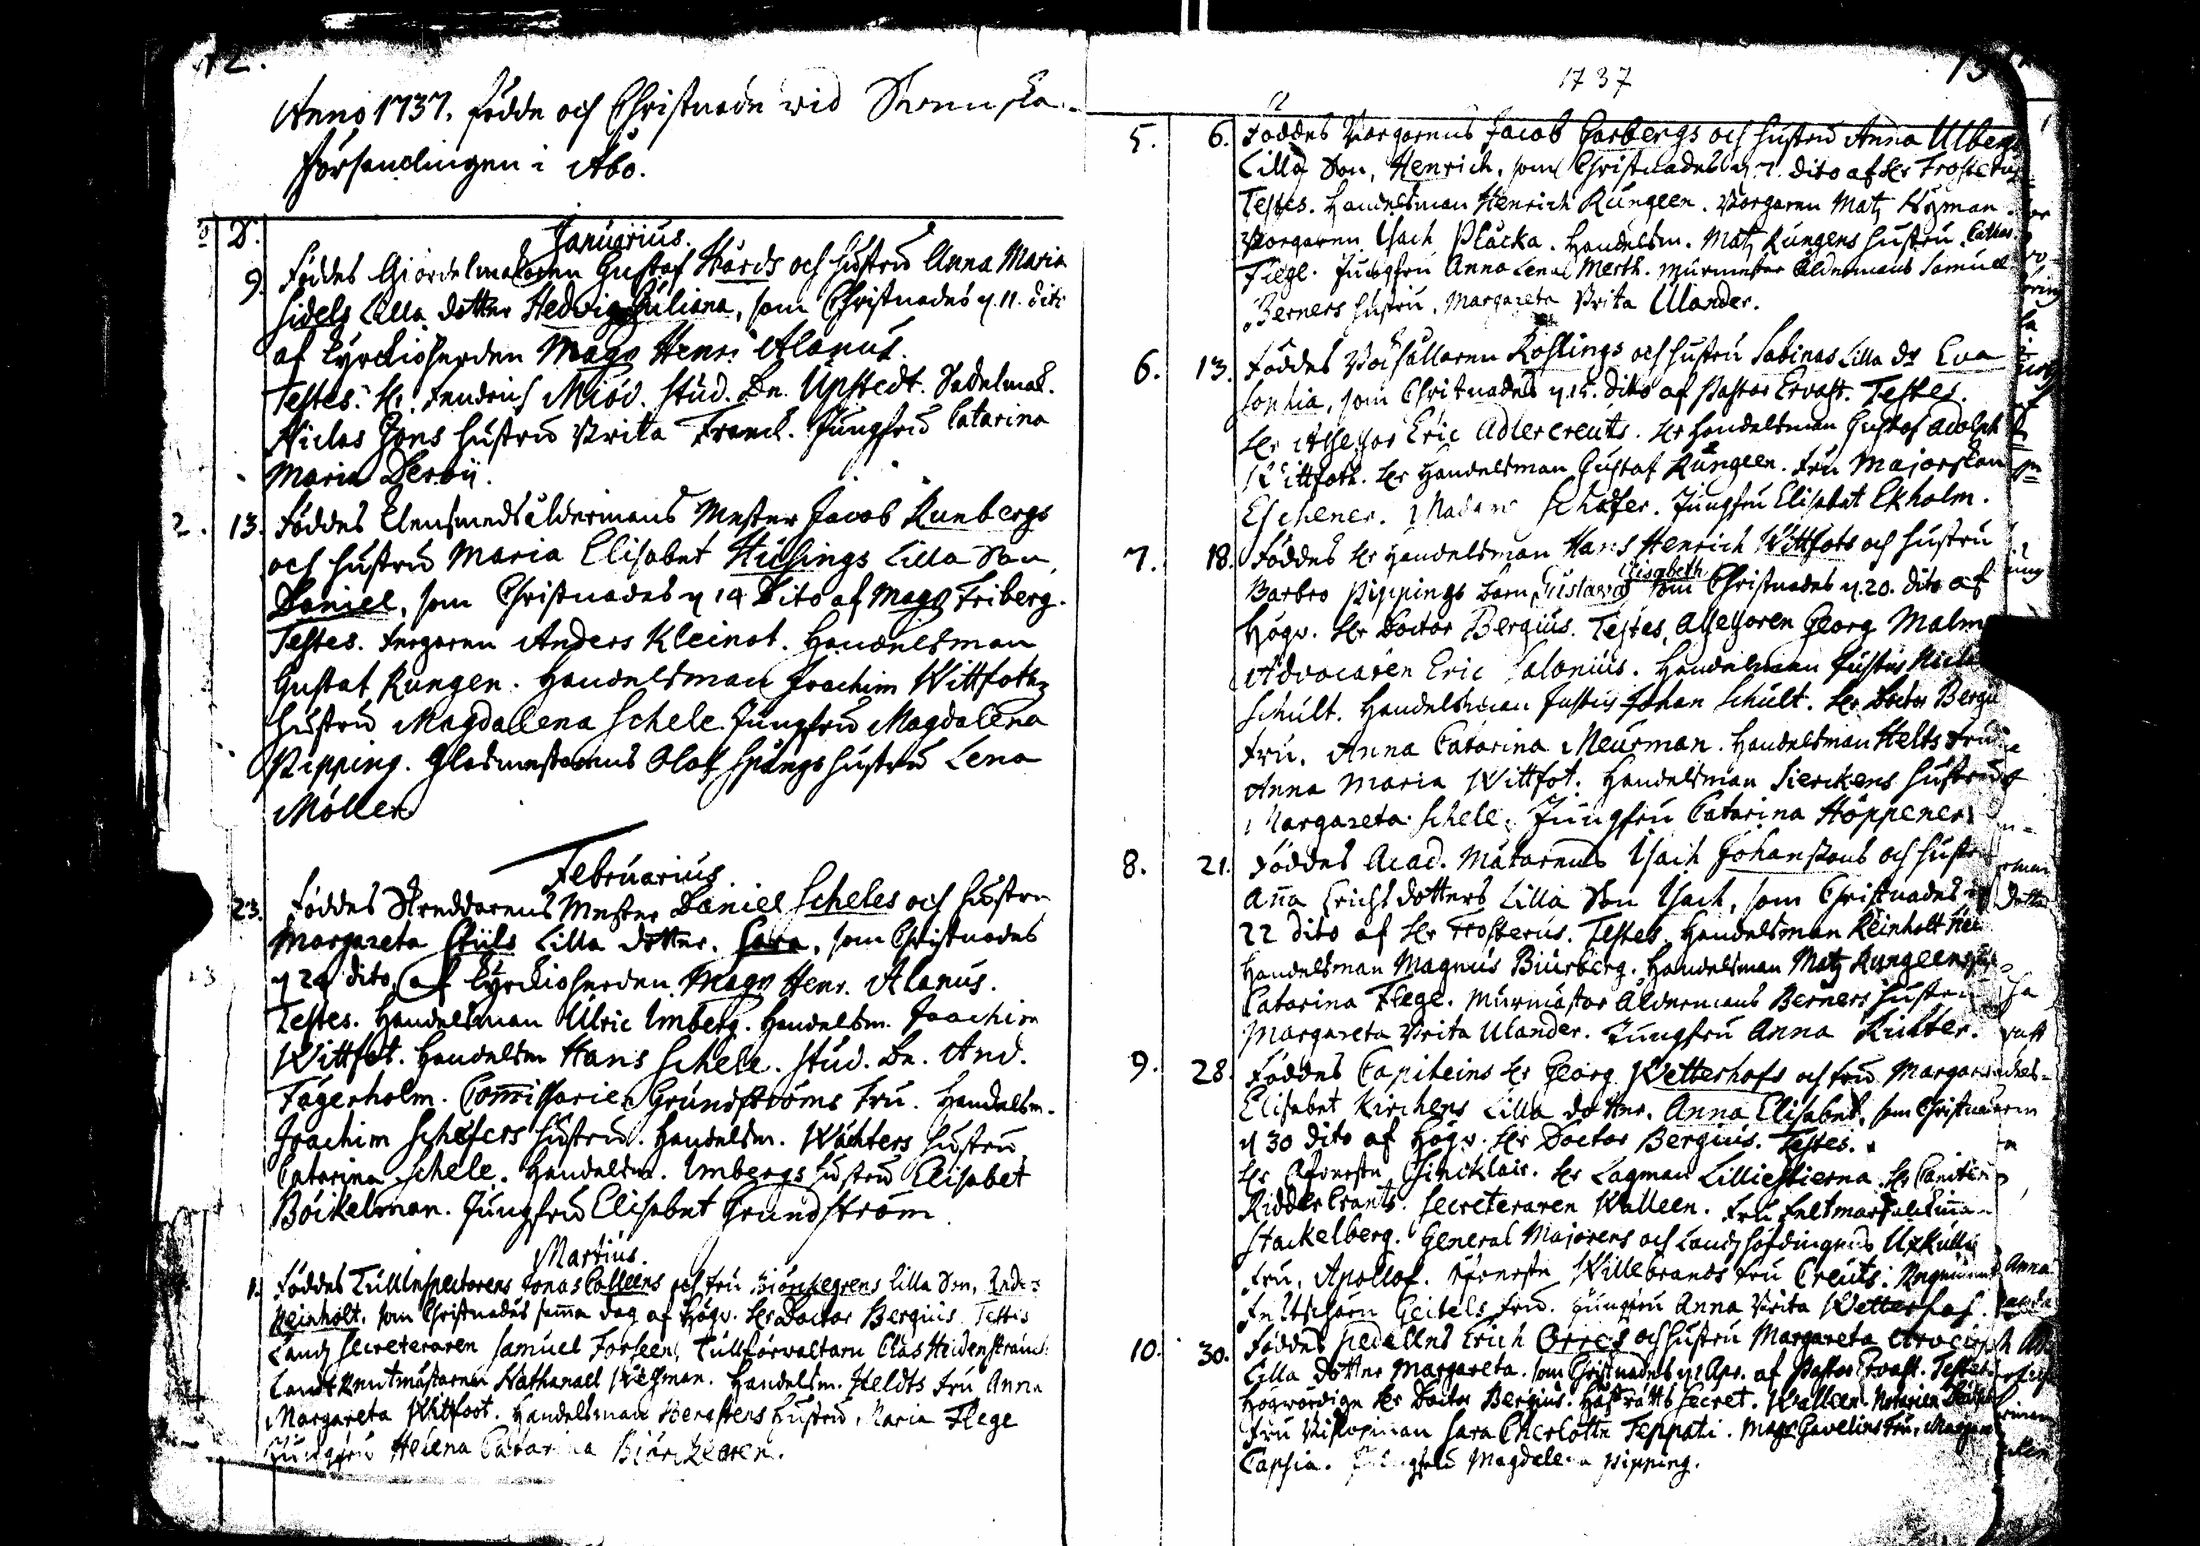 12.
Anno 1737. födde och Christnade wid Swenska
församlingen i Åbo.
D.
Januarius.
9. Föddes Giördelmakaren Gustaf Hårds och hustru Anna Maria
Sidels Lilla dotter Hedvig Juliana, som Christnades d. 11. dito
af Kyrckioherden Mag: Henr. Alanus.
Testes. Hr. Fendrich Miöd. Stud. Dn. Upstedt. Sadelmak.
Niclas Jons hustru Brita Franck. Jungfru Catarina
Maria Derbij.
2. 13. Föddes Clensmeds åldermans Mester Jacob Runbergs
och hustru Maria Elisabet Hüsings Lilla Son,
Daniel, som Christnades d 14 Dito af Mag: Friberg.
Testes. Fergaren Anders Kleinot. Handelsman
Gustaf Rungen. Handelsman Joachim Wittfotz
hustru Magdalena Schele. Jungfru Magdalena
Pipping. Glasmestarens Olof Spångs hustru Lena
Möller
Februarius.
23. Föddes Skreddarens Mester Daniel Scheles och hustru
Margareta Stüls Lilla dotter. Sara, som Christnades
d 24 dito, af Kyrckioherden Mag: Henr. Alanus.
Testes. Handelsman Ulric Imberg. Handelsm. Joachim
Wittfot. Handelsm Hans Schele. Stud. Dn. And.
Fagerholm. Commissarien Grundströms Fru. Handelsm.
Joachim Schefers hustru. Handelsm. Wächters hustru
Catarina Schele. Handelsm. Imbergs hustru Elisabet
Böikelman. Jungfru Elisabet Grundström
Martius.
1. Föddes Tullinspectorens Jonas Calleens och fru Biörkegrens Lilla Son,
Reinholt. som Christnades samma dag af Högv. Hr Doctor Bergius. Testes
Landz Secreteraren Samuel Forseen, Tullförvaltarn Clas Heidenstrauch.
Landtrentmästaren Nathanael Wichman. Handelsm. Heldts fru Anna
Margareta Wittfoot. Handelsman Bergstens hustru, Maria Flege
Jungfru Helena Catarina Biörckegren.
1737
13
5. 6. Föddes Borgarens Jacob Garbergs och hustru Anna Ulbergs
Lilla Son, Henrich, som Christnades d. 7. dito af Hr Frosterus
Testes. Handelsman Henrich Rungeen. Borgaren Matz Nyman.
Borgaren Isach Placka. Handelsm. Matz Rungens hustru, Cathar.
Flege. Jungfru Anna Lena Merth. Murmester åldermans Samuel
Berners hustru, Margareta Brita Ulander.
6. 13. Föddes Bokhållaren Rohlings och hustru Sabinas Lilla dr Eva
Sophia, som Christnades d. 15. dito af Pastor Ervast. Testes.
Hr Assessor Eric Adlercreutz. Hr Handelsman Gustaf Adolph
Wittfoth. Hr Handelsman Gustaf Rungeen. Fru Majorskan
Eschener. Madame Schäfer. Jungfru Elisabet Ekholm.
7. 18. Föddes Hr Handelsman Hans Henrich Wittfots och hustru
Barbro Pippings barn Gustava Elisabeth som Christnades d. 20. dito af
Högv. Hr Doctor Bergius. Testes, Assessoren Georg Malm
Advocaten Eric Salonius. Handelsman Justus
Schult. Handelsman Justus Johan Schult. Hr Doctor Bergii
Fru, Anna Catarina Meurman. Handelsman Helts Fru
Anna Maria Wittfot. Handelsman Sierckens hustru
Margareta Schele. Jungfru Catarina Höppener
8. 21. Föddes Acad. Mätarens Isach Johanssons och hustru
Anna Erichs dotters Lilla Son Isach, som Christnades d
22 dito af Hr Frosterus. Testes. Handelsman Reinholt
Handelsman Magnus Biurberg. Handelsman Matz Rungeens
Catarina Flege. Murmästar Åldermans Berners hustru
Margareta Brita Ulander. Jungfru Anna Richter.
9. 28. Föddes Capiteins Hr Georg Wetterhofs och fru Margareta
Elisabet Kirchens Lilla dotter, Anna Elisabet, som Christnades
d 30 dito af Högv. Hr Doctor Bergius. Testes.
Hr Öfverste Sincklair. Hr Lagman Lilliestierna. Hr Capitein
Ridder Crantz. Secreteraren Walleen. Fru Feltmarskalkinnan
Stackelberg. General Majorens och Landzhöfdingens Uxkulls
Fru, Apollof. Öfverste Willebrands fru Creutz.
Feltscharn Geitels fru. Jungfru Anna Brita Wetterhof.
10. 30. Föddes Pedellns Erich Orres och hustru Margareta
Lilla dotter Margareta. som Christnades d 1 Apr. af Pastor Ervast. Testes
Högwördige Hr Doctor Bergius. Håfrätts Secret. Walleen. Notarien
Fru Biskopinnan Sara Cherlotta Teppati. Mag: Gavelins fru, Margareta
Capsia. Jungfru Magdelena Pipping.